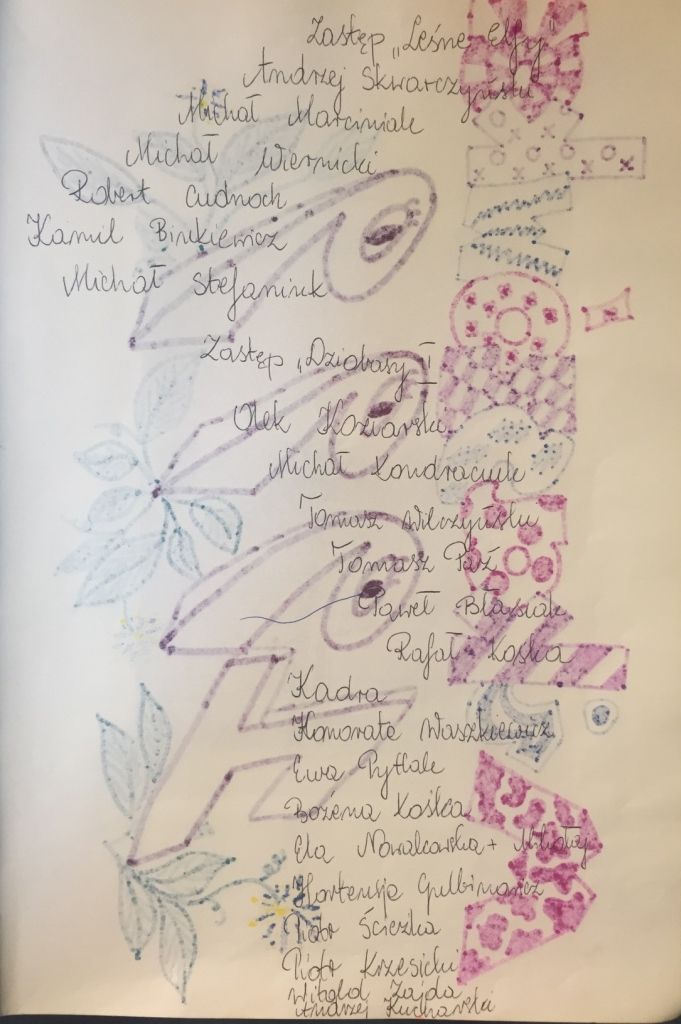 Zastęp „Leśne Elfy"
Andrzej Skwarczyński
Michał Marciniak
Michał Wiernicki
Robert Cudnoch
Kamil Binkiewicz
Michał Stefaniuk
Zastęp „Dziobasy"
Olek Koziarski
Michał Kondraciuk
Tomasz Wilczyński
Tomasz
Paweł Błasiak
Rafał Kośka
Kadra
Honorata Waszkiewicz
Ewa Pytlak
Bożena Kośka
Ela Nowakowska + Mikołaj
Hortensja Gulbinowicz
Piotr Ścieżka
Piotr Krzesicki
Witold Zajda
Andrzej Kucharski